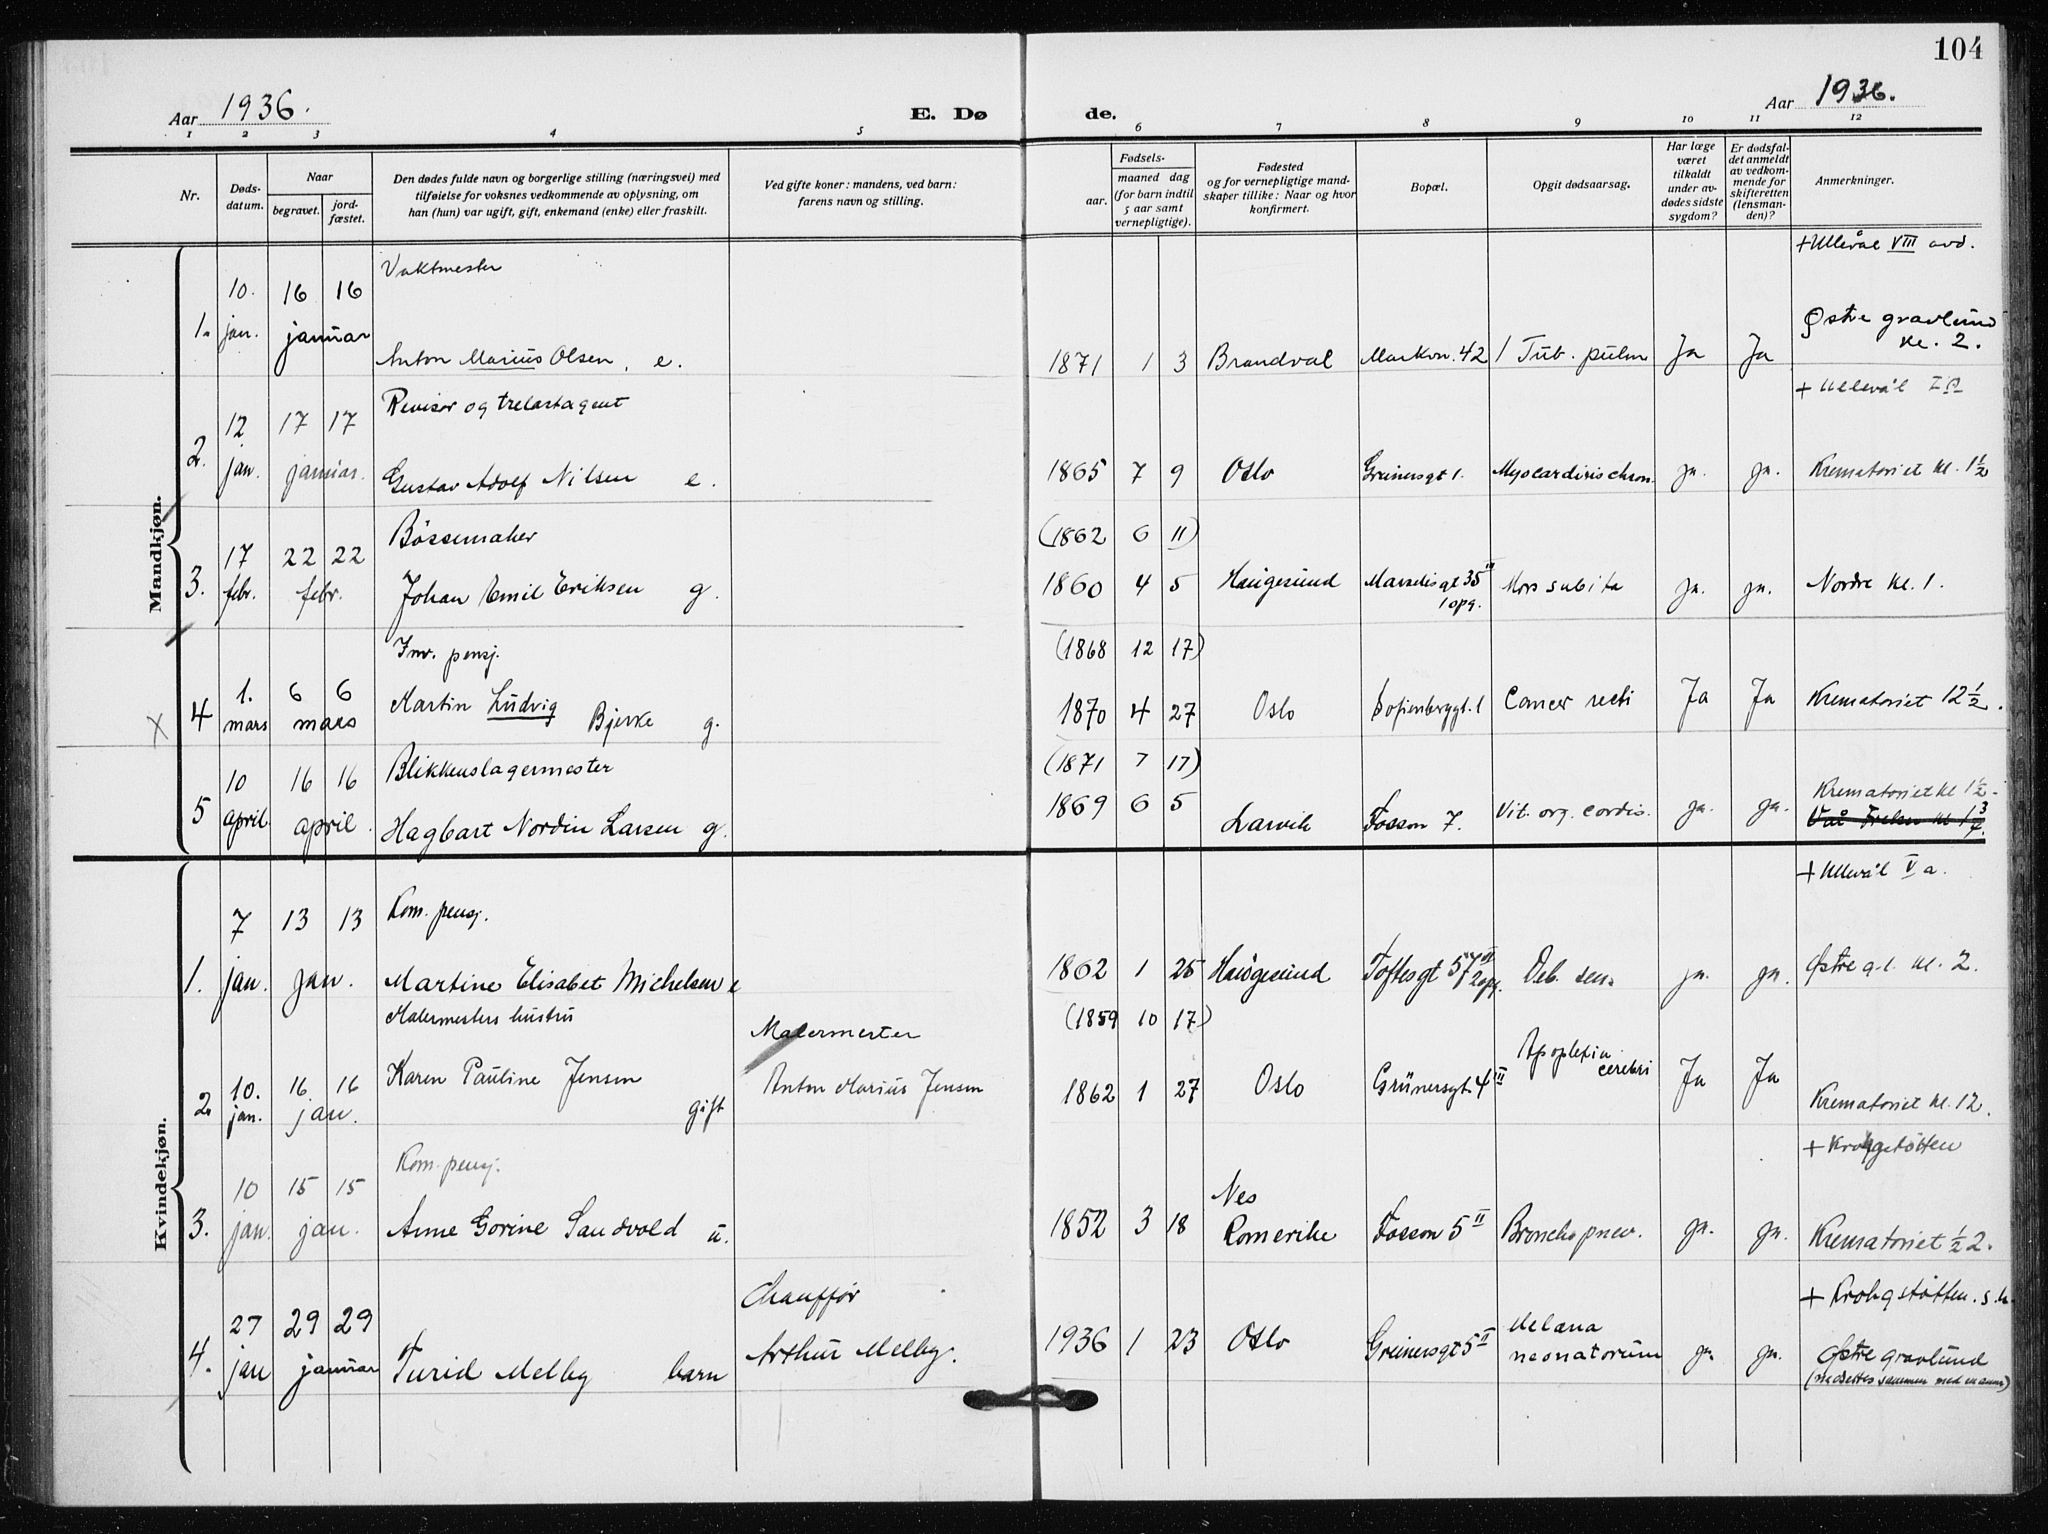 104
Aar 1936.
E. Dø de.
Aar 1936.
1 2 3 4 5 6 7 8 9 10 11 12
Nr.
Døds-
datum.
Naar
begravet.
jord-
fæstet.
Den dødes fulde navn og borgerlige stilling (næringsvei) med
tilføielse for voksnes vedkommende av oplysning, om
han (hun) var ugift, gift, enkemand (enke) eller fraskilt.
Ved gifte koner: mandens, ved barn:
farens navn og stilling.
Fødsels-
aar.
maaned dag
(for barn indtil
5 aar samt
vernepligtige).
Fødested
og for vernepligtige mand-
skaper tillike: Naar og hvor
konfirmert.
Bopæl.
Opgit dødsaarsag.
Har læge
været
tilkaldt
under av-
dødes sidste
sygdom?
Er dødsfal-
det anmeldt
av vedkom-
mende for
skifteretten
(lensman-
den)?
Anmerkninger.
Mandkjøn.
+ Ullevål VIII avd.
Vaktmester
10. 16 16
1. jan. januar
Anton Marius Olsen, e.
1871 1 3 Brandval Markvn. 42 Tub. pulm Ja Ja
Østre gravlund
kl. 2.
+ Ullevål
Revisor og trelastagent
12 17 17
2. jan. januar.
Gustav Adolf Nilsen e.
1865 7 9 Oslo Grünersgt 1. Myocarditis chron. ja. ja. Krematoriet kl. 1 1/2
Bössemaker
(1862 6 11)
17 22 22
3. febr. febr.
Johan Emil Eriksen g.
1860 4 5 Haugesund Marselisgt 35 III
1 opg.
Mors subita ja. ja. Nordre kl. 1.
Inv. pensj.
(1868 12 17)
1. 6 6
X 4 mars mars
Martin Ludvig Bjerke g.
1870 4 27 Oslo Sofienberggt. 1 Cancer recti Ja Ja Krematoriet 12 1/2.
Blikkenslagermester
(1871 7 17)
10 16 16
5 april. april.
Hagbart Nordin Larsen g.
1869 6 5 Larvik Fossvn 7. Vit. org. cordis. ja. ja.
Krematoriet kl 1 1/2
Kvindekjøn.
+ Ullevål V a.
Kom. pensj.
7 13 13
1. jan. jan.
Martine Elisabet Michelsen e
1862 1 25 Haugesund Toftesgt 57 II
2 opg.
Deb. sen. ja. ja. Østre g.l. kl. 2.
Malermesters hustru
(1859 10 17)
Malermester
10. 16. 16
2. jan. jan.
Karen Pauline Jensen
gift
Anton Marius Jensen
1862 1 27 Oslo Grünersgt. 4 III
Apoplexia
cerebri
Ja Ja Krematoriet kl. 12.
+ Krohgstøtten
Kom. pensj.
10 15 15
3. jan. jan.
Anne Gorine Sandvold u.
1852 3 18
Nes
Romerike
Fossvn 5 II Bronchopneu. ja. ja. Krematoriet 1/2 2.
+ Krohgstøtten. s.h.
Chauffør
27 29 29
4. jan januar
Turid Melby barn
Arthur Melby.
1936 1 23 Oslo Grünersgt 5 II
Melæna
neonatorum
ja. ja.
Østre gravlund